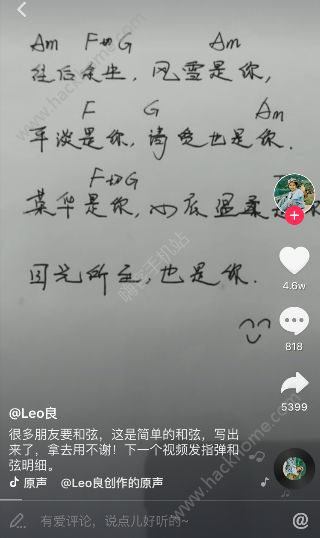 Am F G Am
往后余生，风雪是你，
F G Am
平淡是你，清贫也是你．
F G
荣华是你，心底温柔是
目光所至，也是你．
4.6w
818
5399
@Leo良
很多朋友要和弦，这是简单的和弦，写出
来了，拿去用不谢！下一个视频发指弹和
弦明细。
原声 @Leo良创作的原声
有爱评论，说点儿好听的~
www.hackhome.com
嗨客手机站